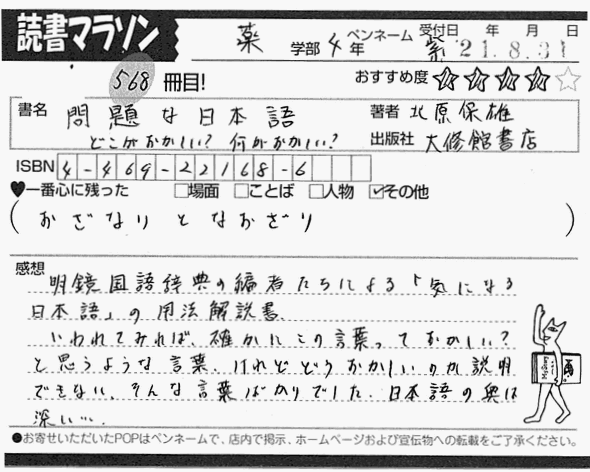 読書マラソン
薬 学部 4 年 ペンネーム 紫 受付日 年 月 日 21.8.31
568 冊目! おすすめ度
書名 問題な日本語 著者 北原保雄
どこがおかしい? 何がおかしい? 出版社 大修館書店
ISBN 4-469-22168-6
♥一番心に残った □場面 □ことば □人物 ☑その他
(おざなりとなおざり)
感想
明鏡国語辞典の編者たちによる「気になる
日本語」の用法解説書。
いわれてみれば、確かにこの言葉っておかしい?
と思うような言葉、けれどどうおかしいのか説明
できない、そんな言葉ばかりでした。日本語の奥は
深い…。
●お寄せいただいたPOPはペンネームで、店内で掲示、ホームページおよび宣伝物への転載をご了承ください。